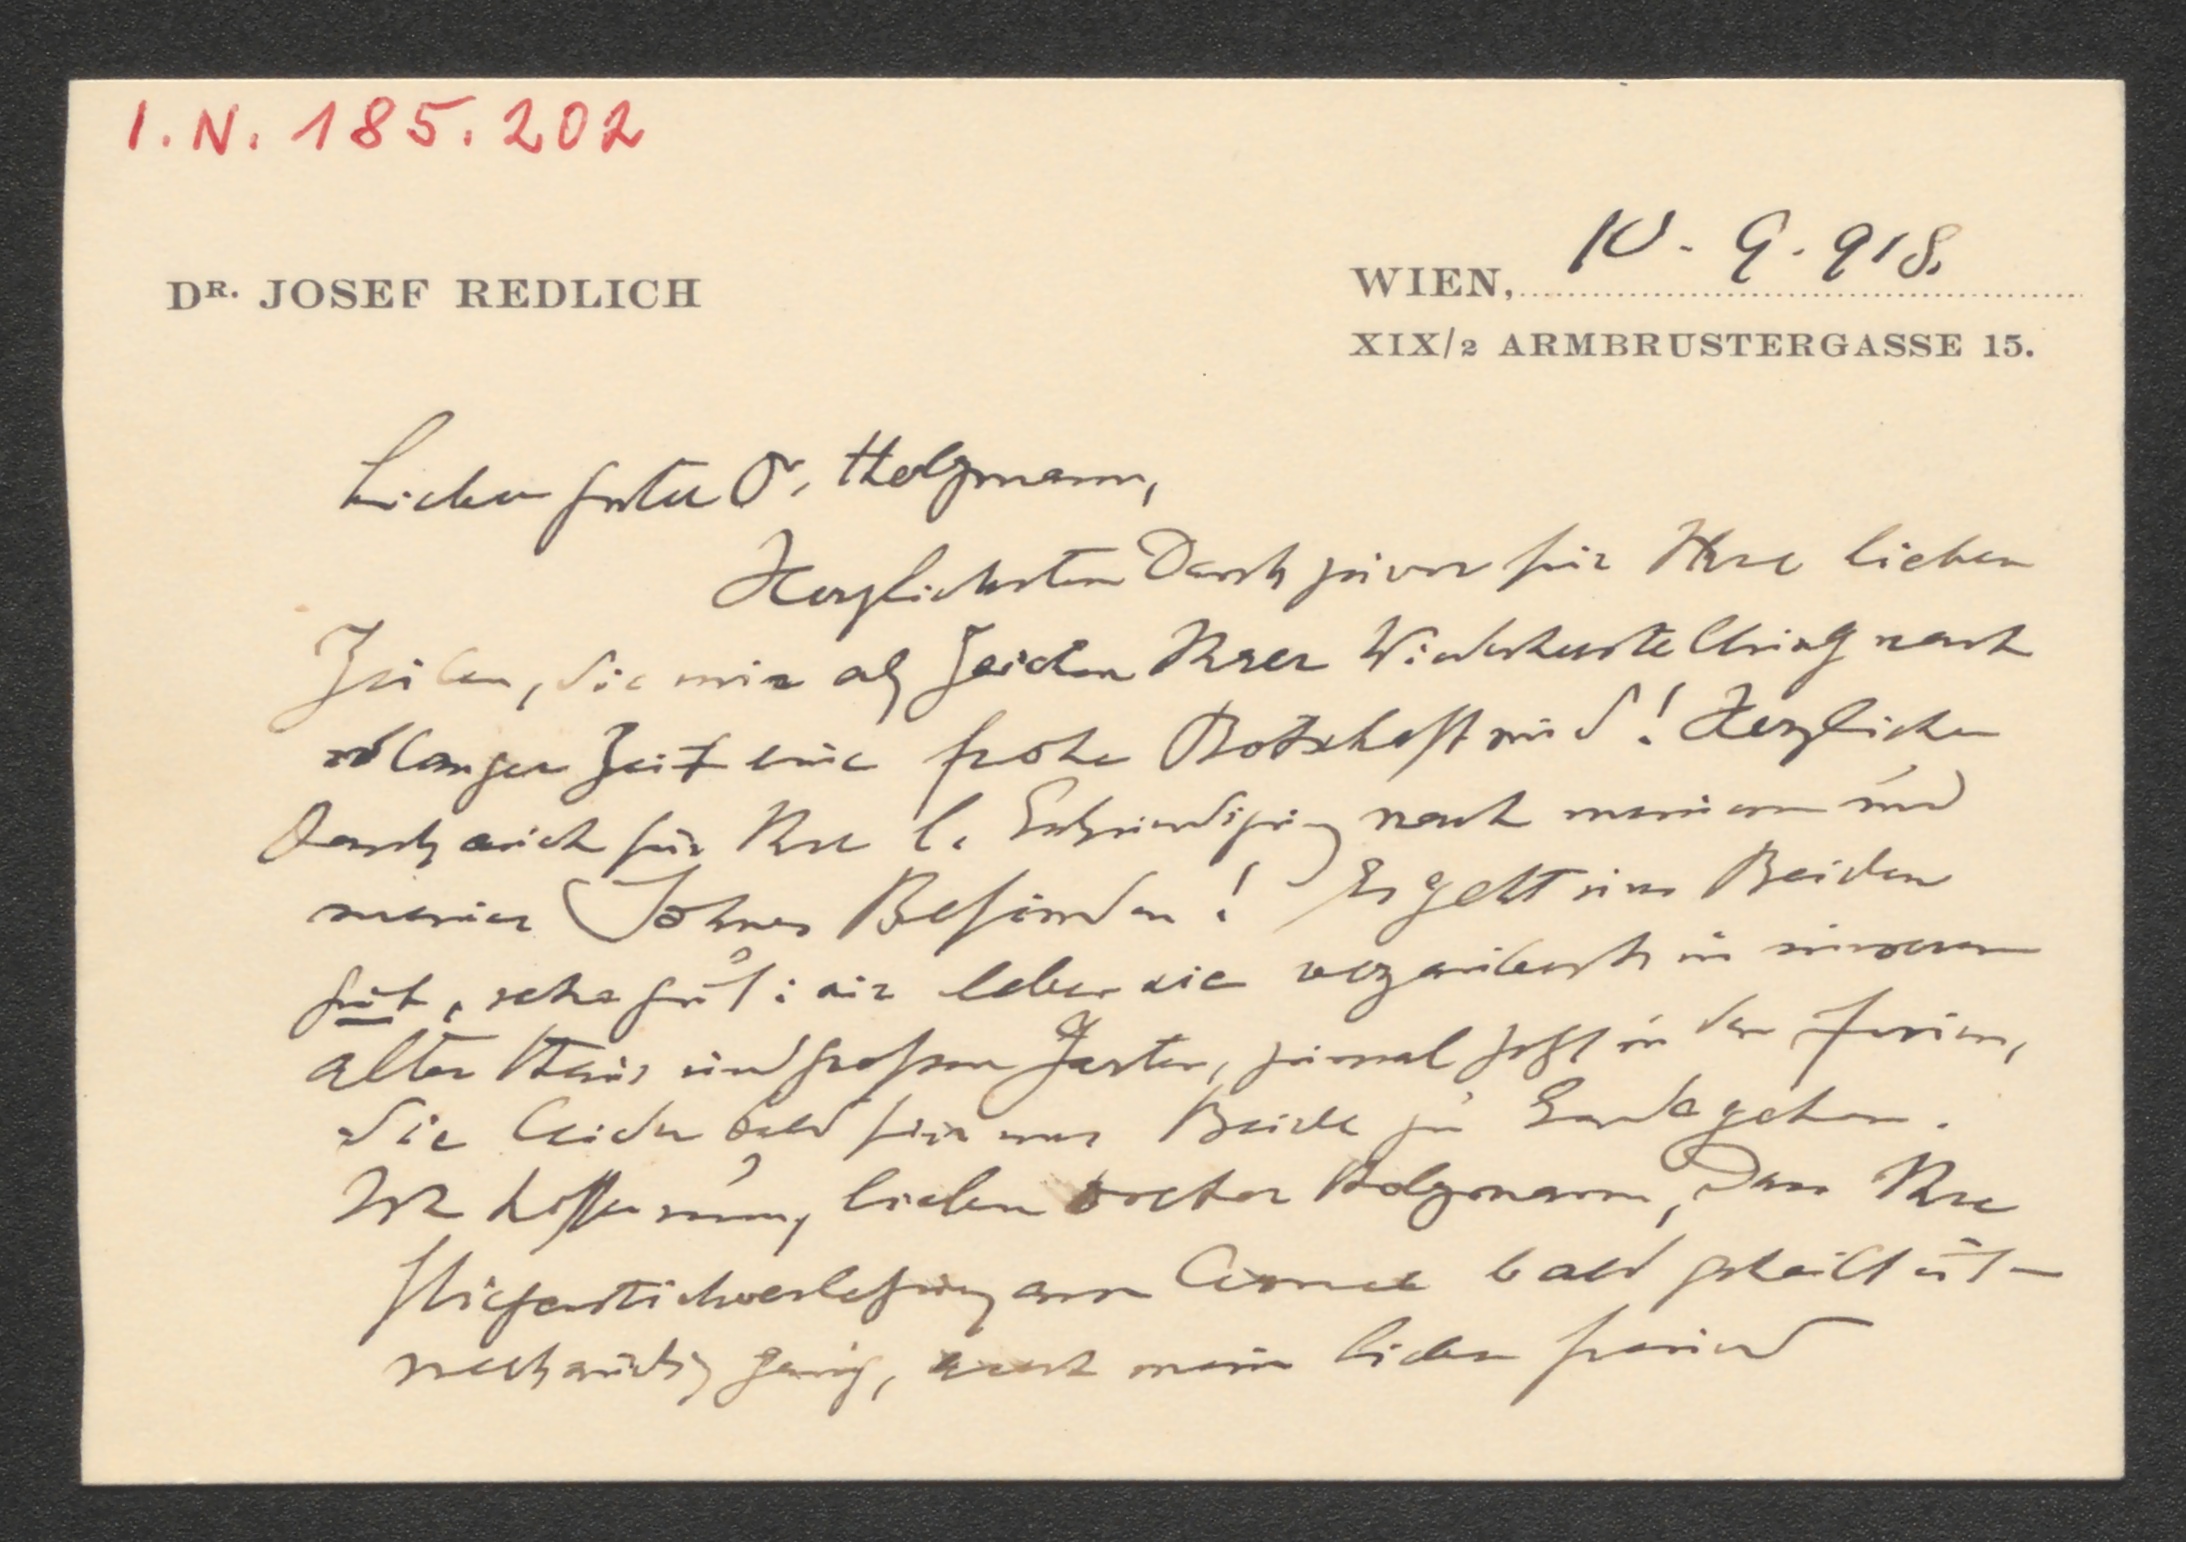 I. N. 185.202
DR. JOSEF REDLICH
WIEN, 10. 9. 918.
XIX/2 ARMBRUSTERGASSE 15.
Lieber guter Dr. Holzmann,
Herzlichsten Dank zuvor für Ihre lieben
Zeilen, die mir als Zeichen Ihrer Wiederherstellung nach
so langer Zeit eine frohe Botschaft sind! Herzlichen
Dank auch für Ihre l. Erkundigung nach meinem und
meines Sohnes Befinden! Es geht uns Beiden
gut, sehr gut: wir leben wie verzaubert in unserem
alten Haus und großen Garten, zumal jetzt in den Ferien,
die leider bald für uns Beide zu Ende gehen.
Ich hoffe nun, lieber Doctor Holzmann, dass Ihre
am bald geheilt ist –
merkwürdig genug, auch mein lieber Freund